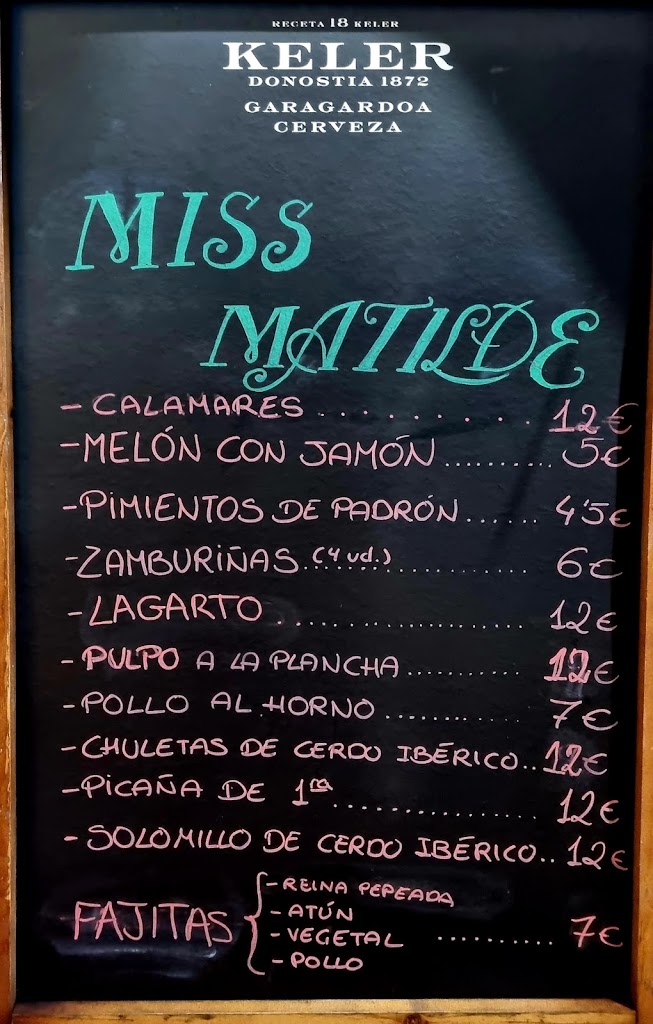 RECETA 18 KELER
KELER
DONOSTIA 1872
GARAGARDOA
CERVEZA
MISS
MATILDE
- CALAMARES .......... 12€
- MELÓN CON JAMÓN .......... 5€
- PIMIENTOS DE PADRÓN ...... 4'5€
- ZAMBURIÑAS (4 ud.) .......... 6€
- LAGARTO .......... 12€
- PULPO A LA PLANCHA .......... 12€
- POLLO AL HORNO .......... 7€
- CHULETAS DE CERDO IBÉRICO .. 12€
- PICAÑA DE 1ra .......... 12€
- SOLOMILLO DE CERDO IBÉRICO .. 12€
FAJITAS { - REINA PEPEADA
- ATÚN
- VEGETAL .......... 7€
- POLLO